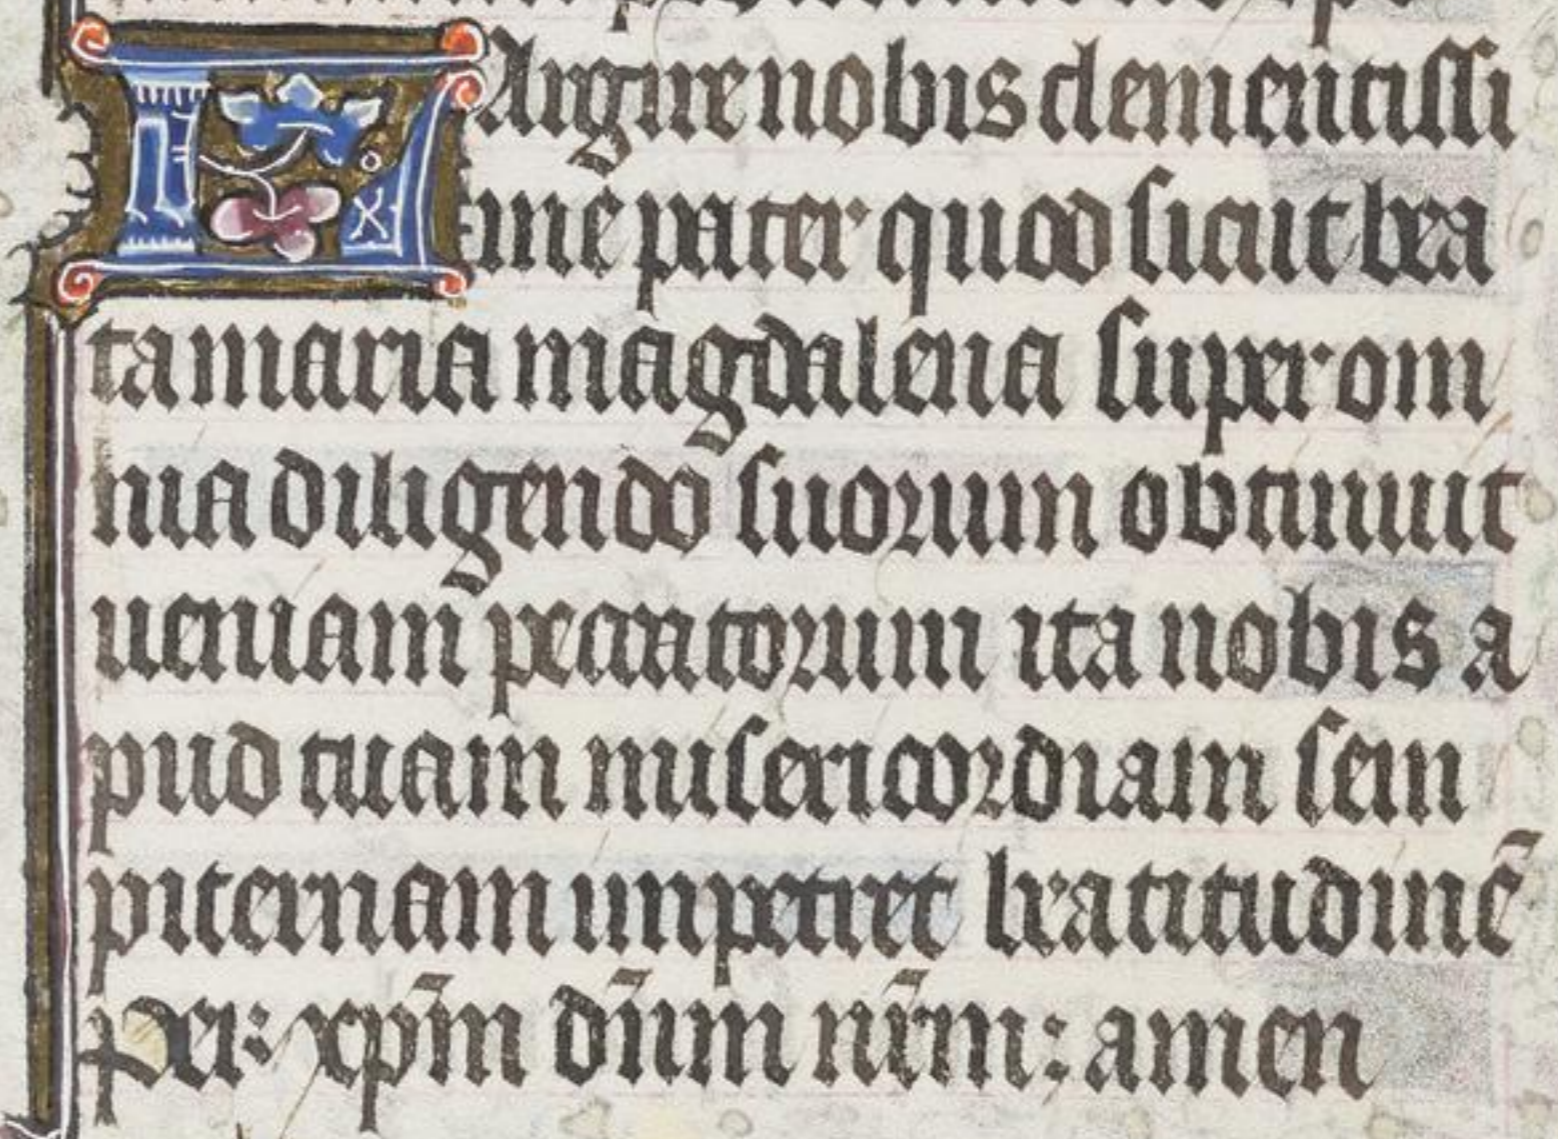 LArgire nobis clementissi
me pater quod sicut bea
ta maria magdalena super om
nia diligendo suorum obtinuit
ueniam peccatorum ita nobis a
pud tuam misericordiam sem
piternam impetret beatitudinē
Per xp̄m dn̄um nr̄m : amen